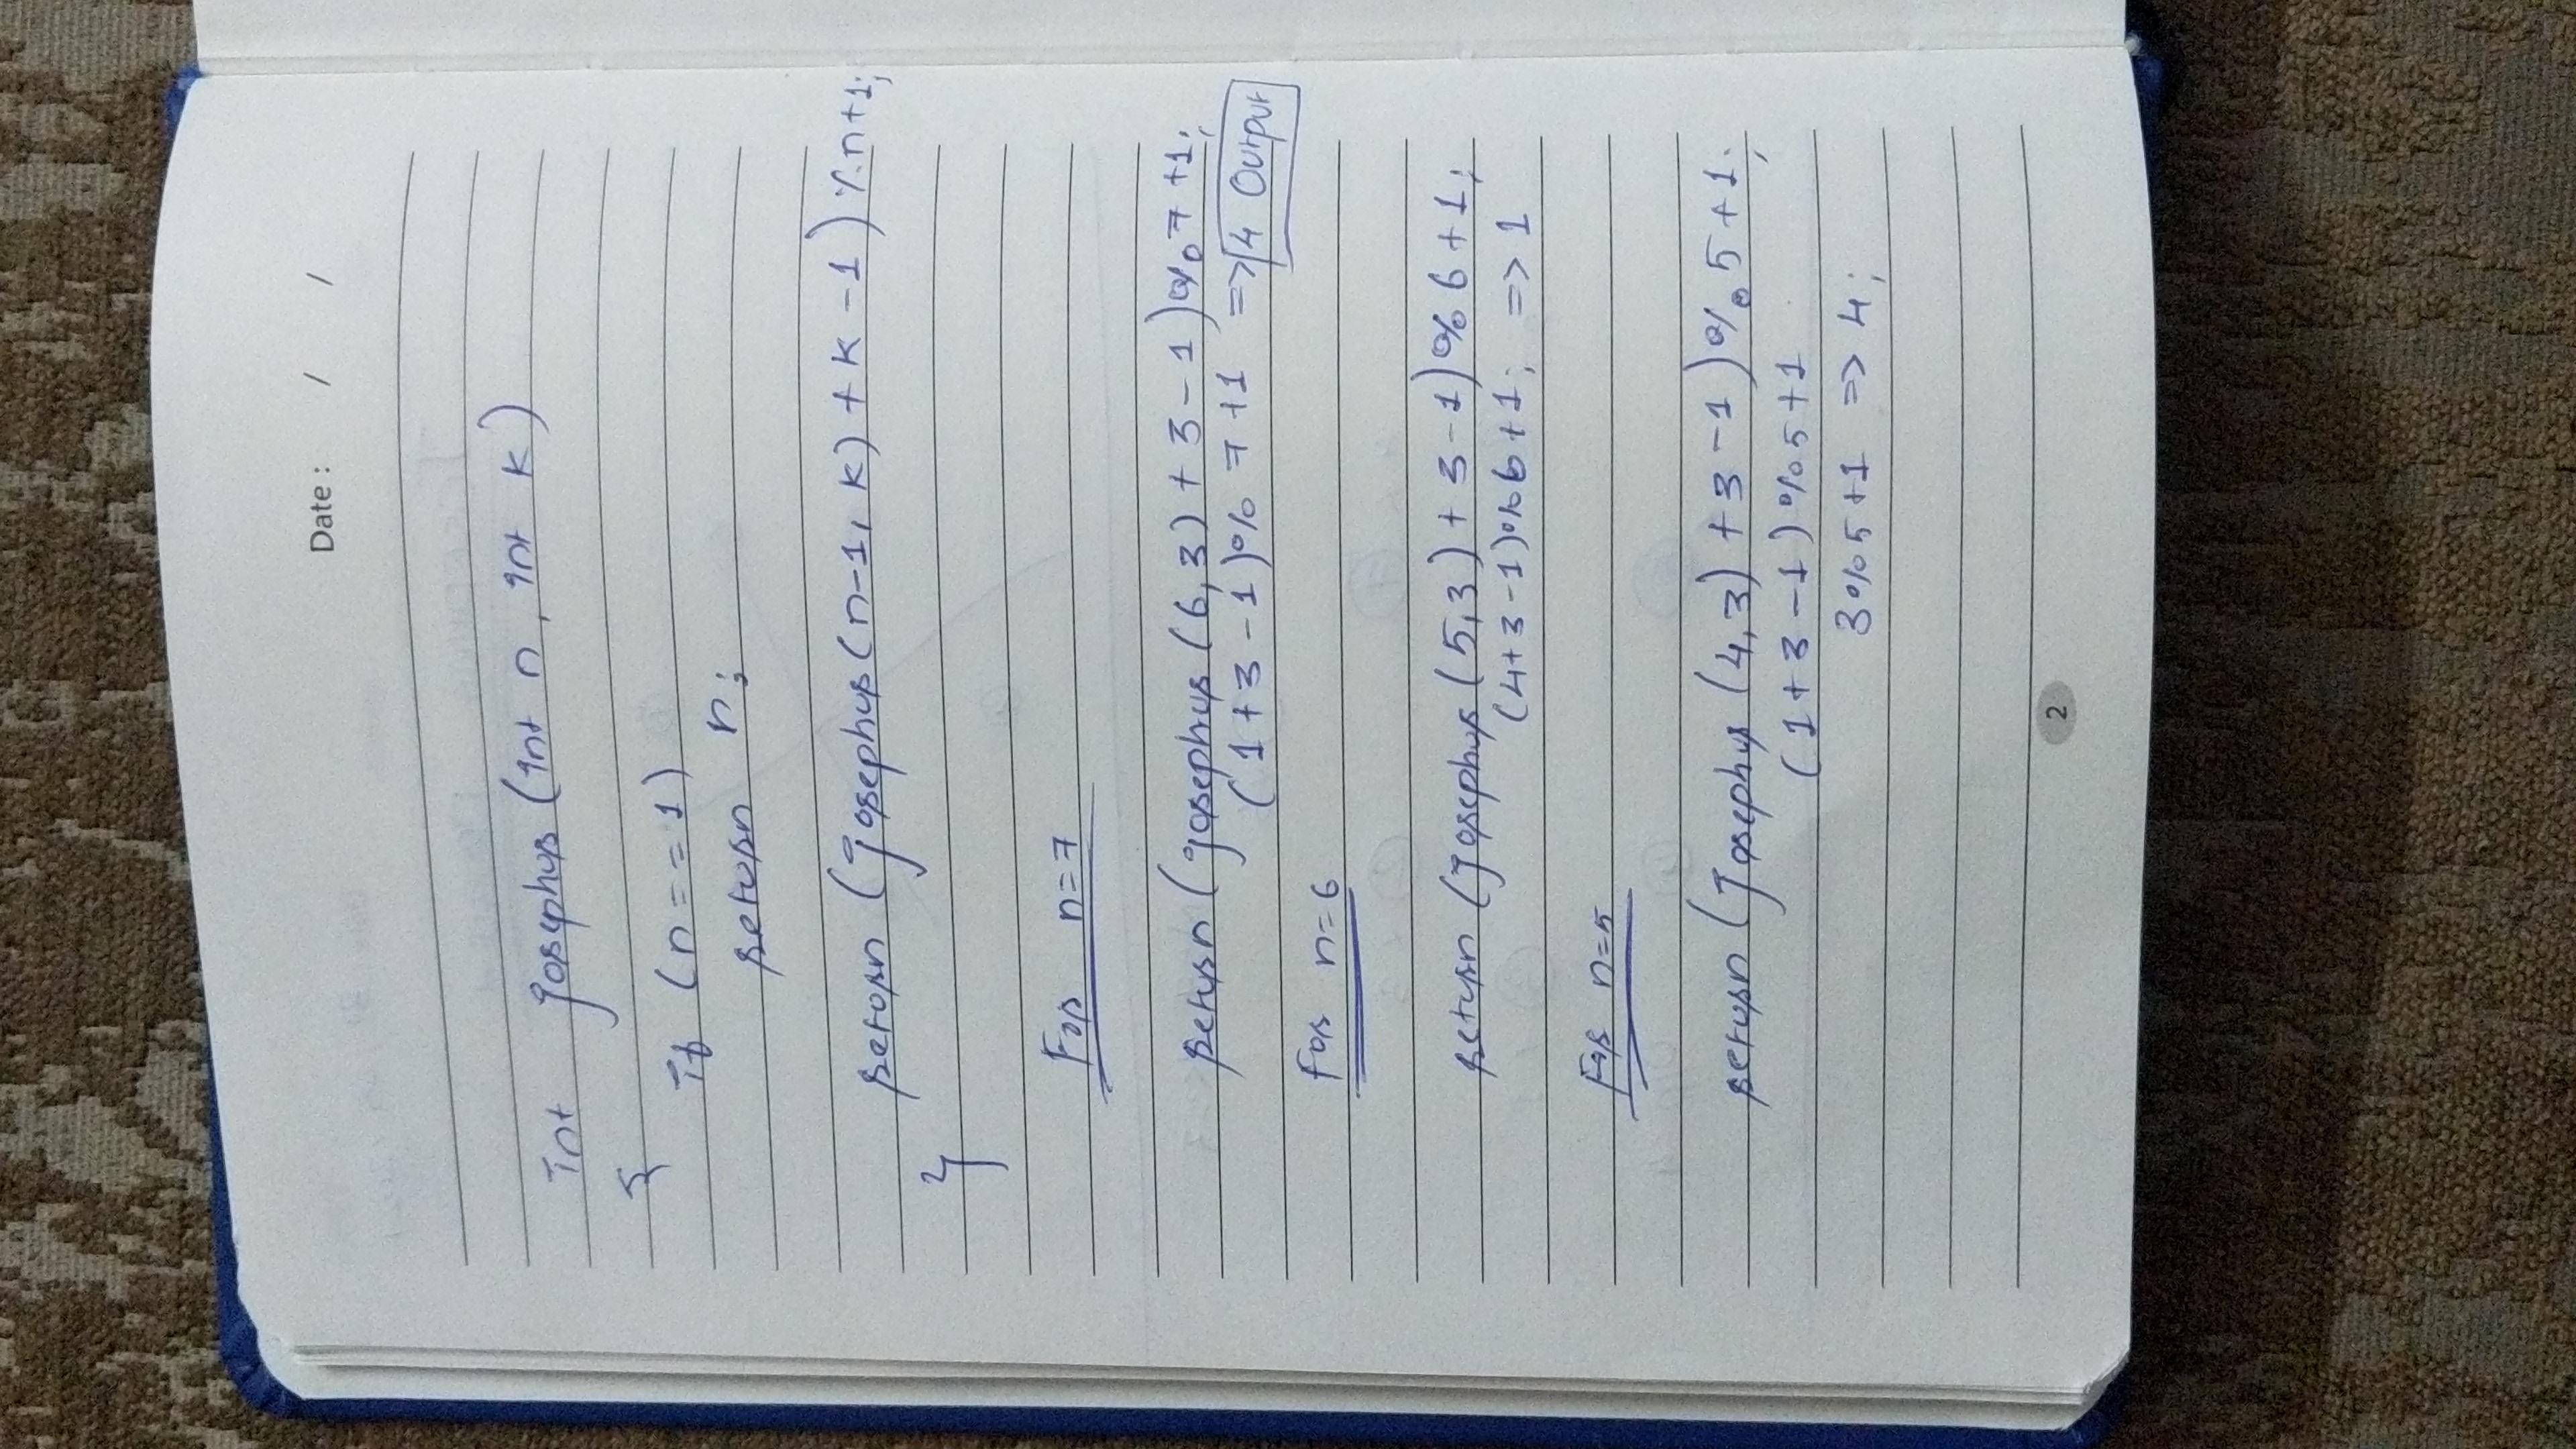 Date : / /
int josephus (int n, int k)
{
if (n == 1)
return n;
return (josephus(n-1, k) + k -1) % n+1;
}
For n=7
return (josephus (6,3) + 3 - 1) % 7 +1;
(1+3-1)% 7+1 => 4 Output
For n=6
return (josephus (5,3) + 3-1) % 6 +1;
(4+3-1)%6+1; => 1
For n=5
return (josephus (4,3) +3-1) % 5+1;
(1+3-1)%5+1
3%5+1 => 4;
2